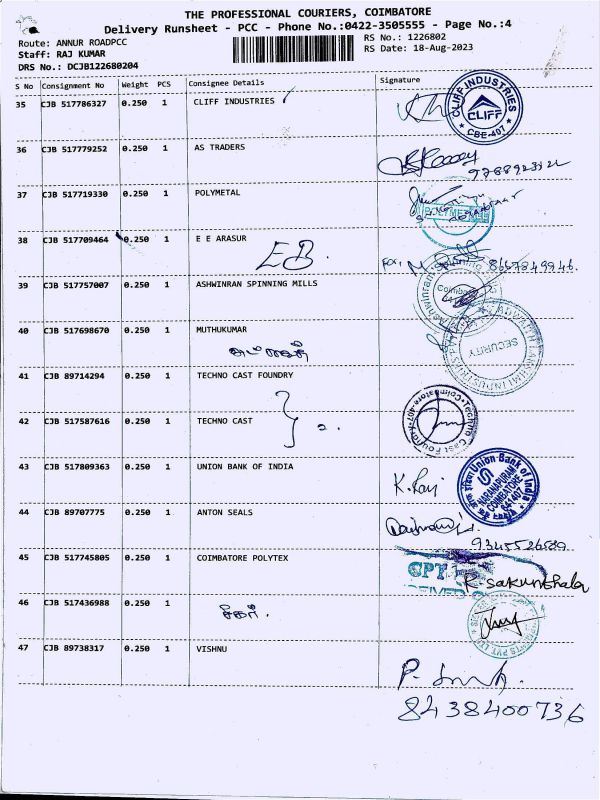 THE PROFESSIONAL COURIERS, COIMBATORE
Delivery Runsheet - PCC - Phone No.:0422-3505555 - Page No.:4
Route: ANNUR ROADPCC
RS No.: 1226802
Staff: RAJ KUMAR
RS Date: 18-Aug-2023
DRS No.: DCJB122680204
S No Consignment No Weight PCS Consignee Details Signature
35 CJB 517786327 0.250 1 CLIFF INDUSTRIES
CLIFF INDUSTRIES
CLIFF
CBE-407
36 CJB 517779252 0.250 1 AS TRADERS
37 CJB 517719330 0.250 1 POLYMETAL
38 CJB 517709464 0.250 1 E E ARASUR
EB.
8667849946.
39 CJB 517757007 0.250 1 ASHWINRAN SPINNING MILLS
40 CJB 517698670 0.250 1 MUTHUKUMAR
SECURITY
41 CJB 89714294 0.250 1 TECHNO CAST FOUNDRY
42 CJB 517587616 0.250 1 TECHNO CAST
43 CJB 517809363 0.250 1 UNION BANK OF INDIA
K. Raj
Union Bank of India
NARANAPURAM
COIMBATORE
641407
44 CJB 89707775 0.250 1 ANTON SEALS
9345526589
45 CJB 517745805 0.250 1 COIMBATORE POLYTEX
CPT
R. sakunthala
46 CJB 517436988 0.250 1
47 CJB 89738317 0.250 1 VISHNU
8438400736